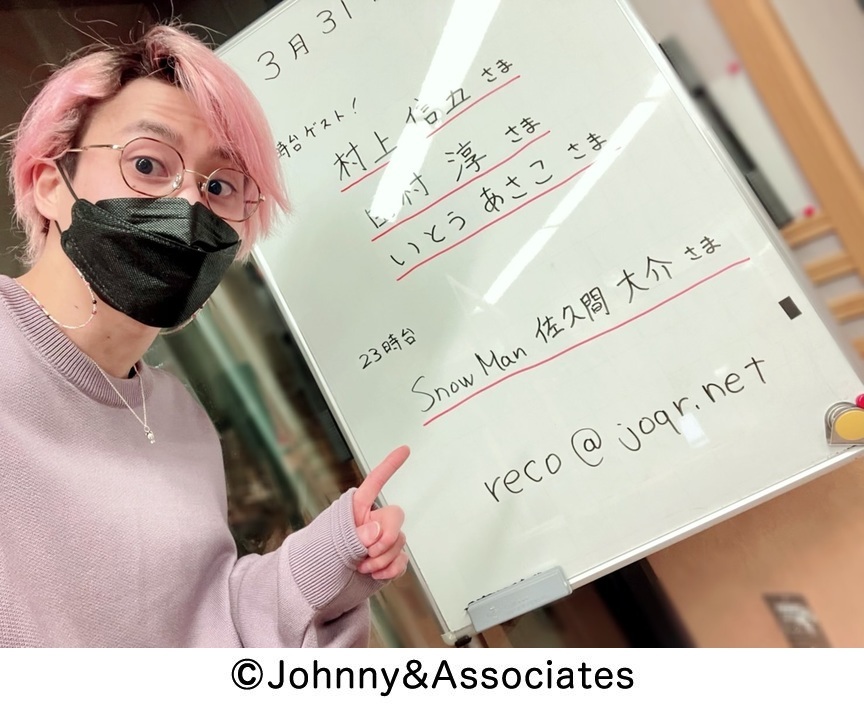 3月31
時台ゲスト!
村上 信五 さま
村 淳 さま
いとう あさこ さま
23時台
Snow Man 佐久間 大介 さま
reco@joqr.net
©Johnny&Associates